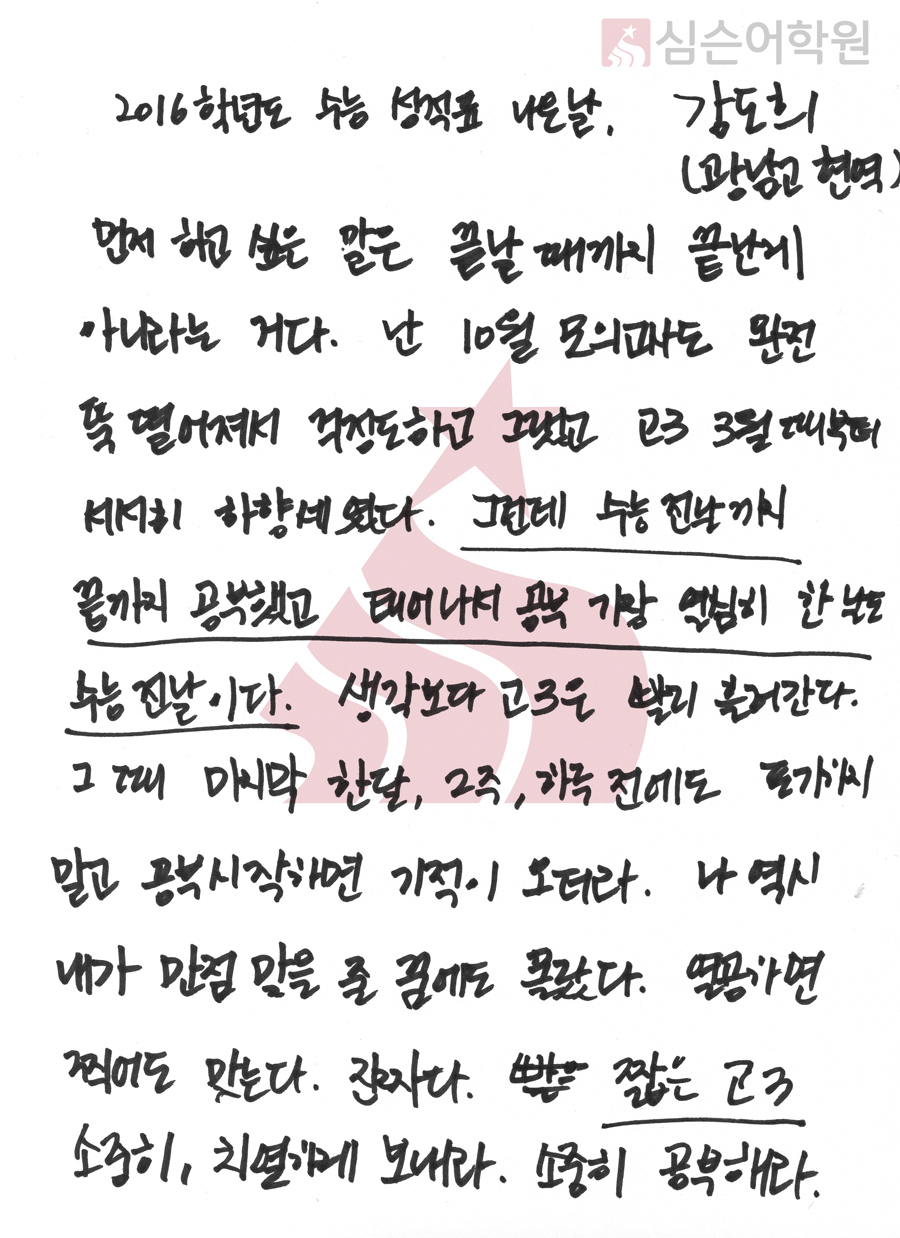 심슨어학원
2016학년도 수능 성적표 나온날. 강도희
(광남고 현역)
먼저 하고 싶은 말은 끝날 때까지 끝난게
아니라는 거다. 난 10월 모의고사도 완전
뚝 떨어져서 걱정도하고 그랬고 고3 3월 때부터
서서히 하향세였다. 그런데 수능 전날까지
끝까지 공부했고 태어나서 공부 가장 열심히 한 날도
수능 전날이다. 생각보다 고3은 빨리 흘러간다.
그 때 마지막 한달, 2주, 하루 전에도 포기하지
말고 공부시작하면 기적이 오더라. 나 역시
내가 만점 맞을 줄 꿈에도 몰랐다. 열공하면
찍어도 맞는다. 진짜다. 짧은 고3
소중히, 치열하게 보내라. 소중히 공부해라.